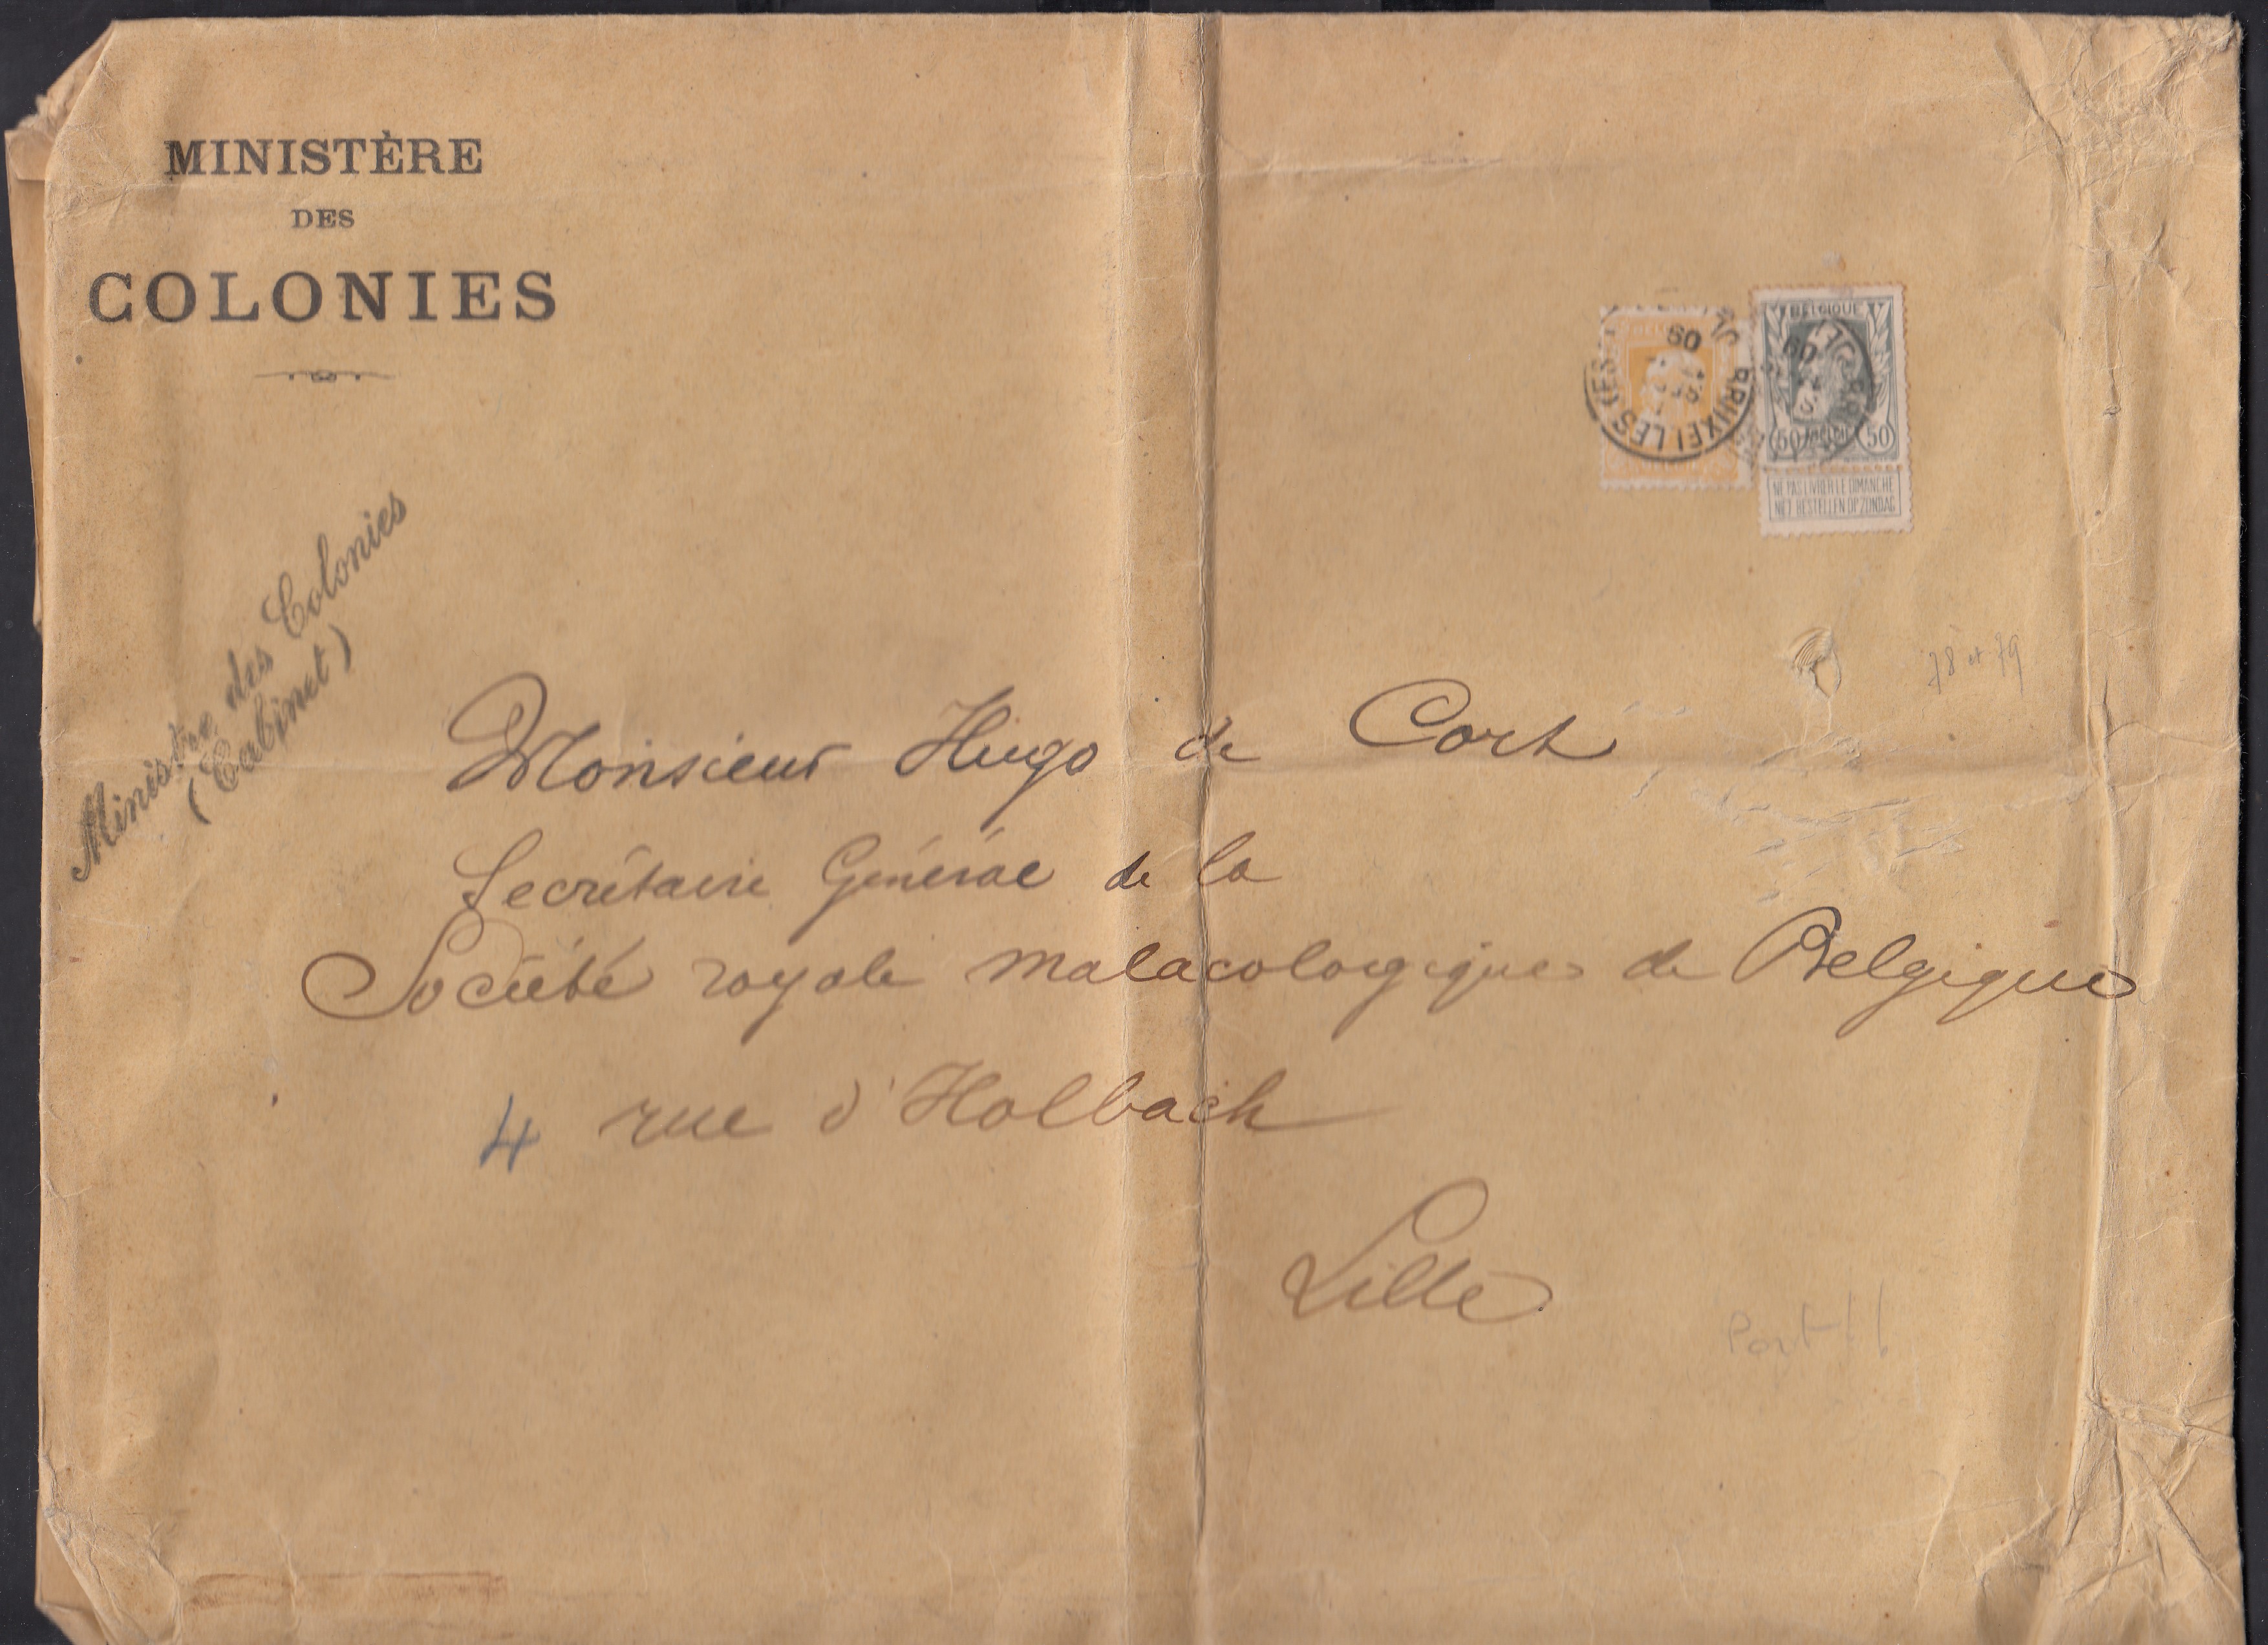 MINISTÈRE
DES
COLONIES
Ministre des Colonies
(Cabinet)
BELGIQUE
50 50
NE PAS LIVRER LE DIMANCHE
NIET BESTELLEN OP ZONDAG
BRUXELLES
09
09
78 et 79
Monsieur Hugo de Cort
Secrétaire Général de la
Société royale malacologique de Belgique
4 rue d'Holbach
Lille
Port!!